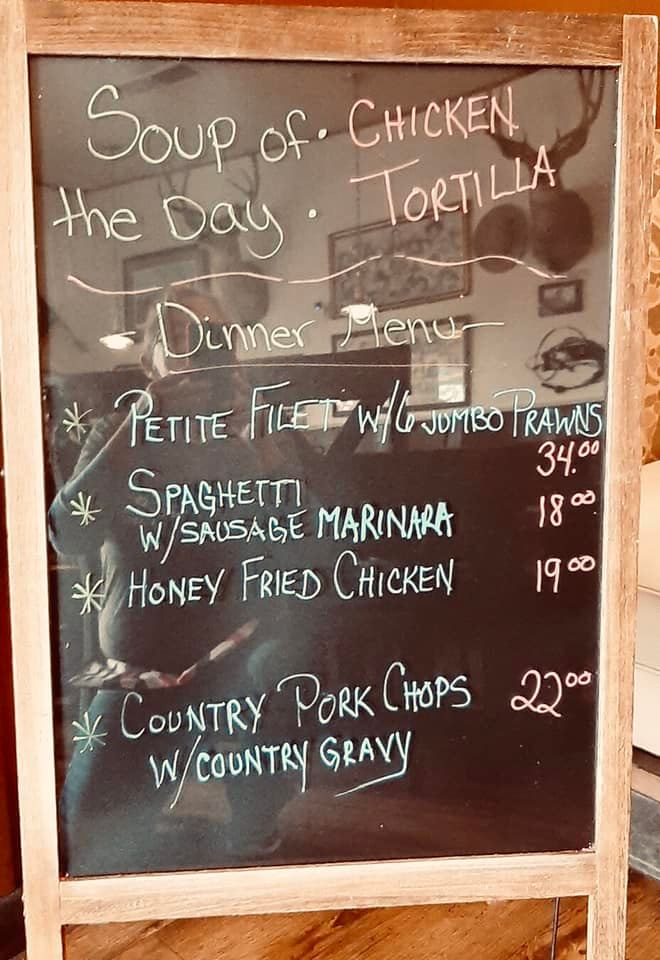 Soup of · CHICKEN
the Day · TORTILLA
- Dinner Menu -
* PETITE FILET W/6 JUMBO PRAWNS
34.00
* SPAGHETTI
W/SAUSAGE MARINARA 18 00
* HONEY FRIED CHICKEN 19 00
* COUNTRY PORK CHOPS 22 00
W/COUNTRY GRAVY